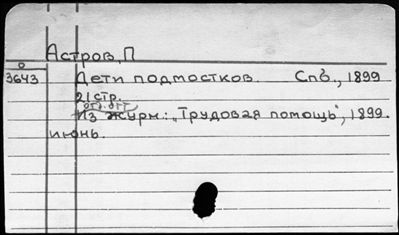 Астров, П
0
3643 Дети подмостков. Спб., 1899
21 стр.
отд. отт.
Из журн.: „Трудовая помощь", 1899.
июнь.